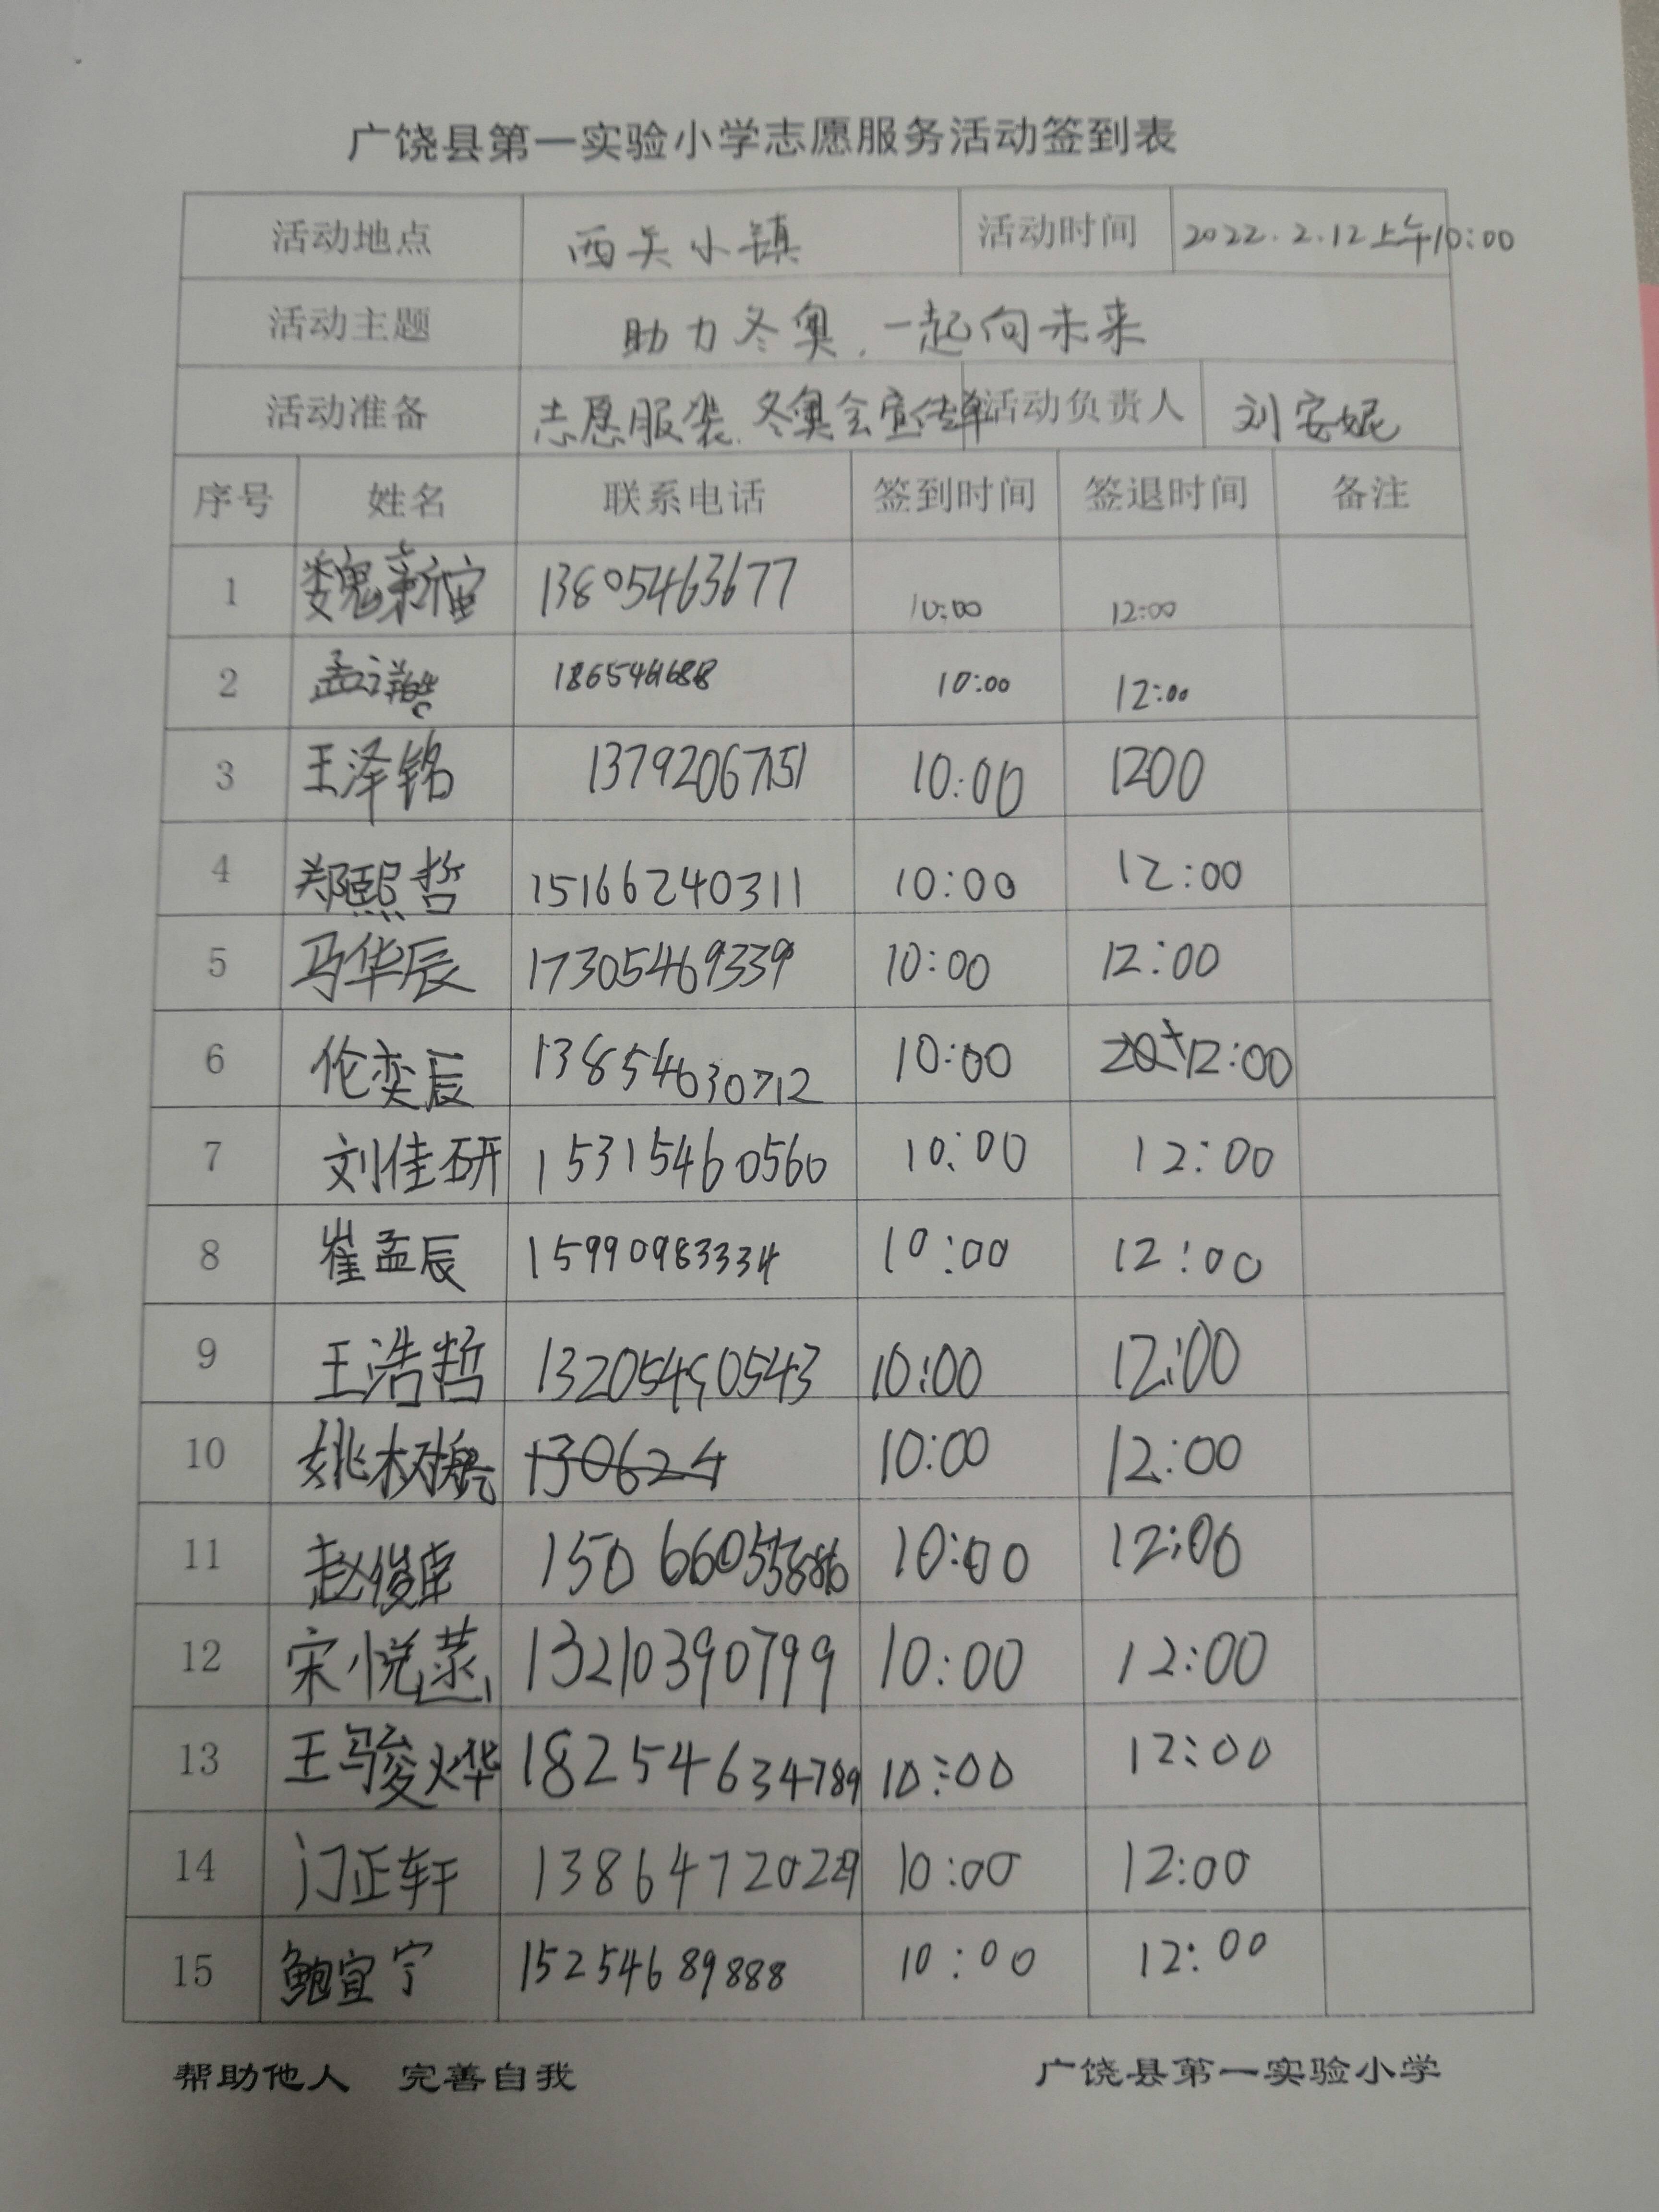 广饶县第一实验小学志愿服务活动签到表
活动地点 西关小镇 活动时间 2022.2.12上午10:00
活动主题 助力冬奥,一起向未来
活动准备 志愿服装、冬奥会宣传单 活动负责人 刘安妮
序号 姓名 联系电话 签到时间 签退时间 备注
1 魏新宙 13805463677 10:00 12:00
2 孟祥 10:00 12:00
3 王泽铭 13792067151 10:00 1200
4 郑熙哲 15166240311 10:00 12:00
5 马华辰 17305469339 10:00 12:00
6 伦奕辰 13854630712 10:00 12:00
7 刘佳研 15315460560 10:00 12:00
8 崔孟辰 15990983334 10:00 12:00
9 王浩哲 10:00 12:00
10 姚树 130624 10:00 12:00
11 赵俊 10:00 12:00
12 宋悦 13210390799 10:00 12:00
13 王骏烨 18254634789 10:00 12:00
14 门正轩 10:00 12:00
15 鲍宜宁 15254689888 10:00 12:00
帮助他人 完善自我 广饶县第一实验小学